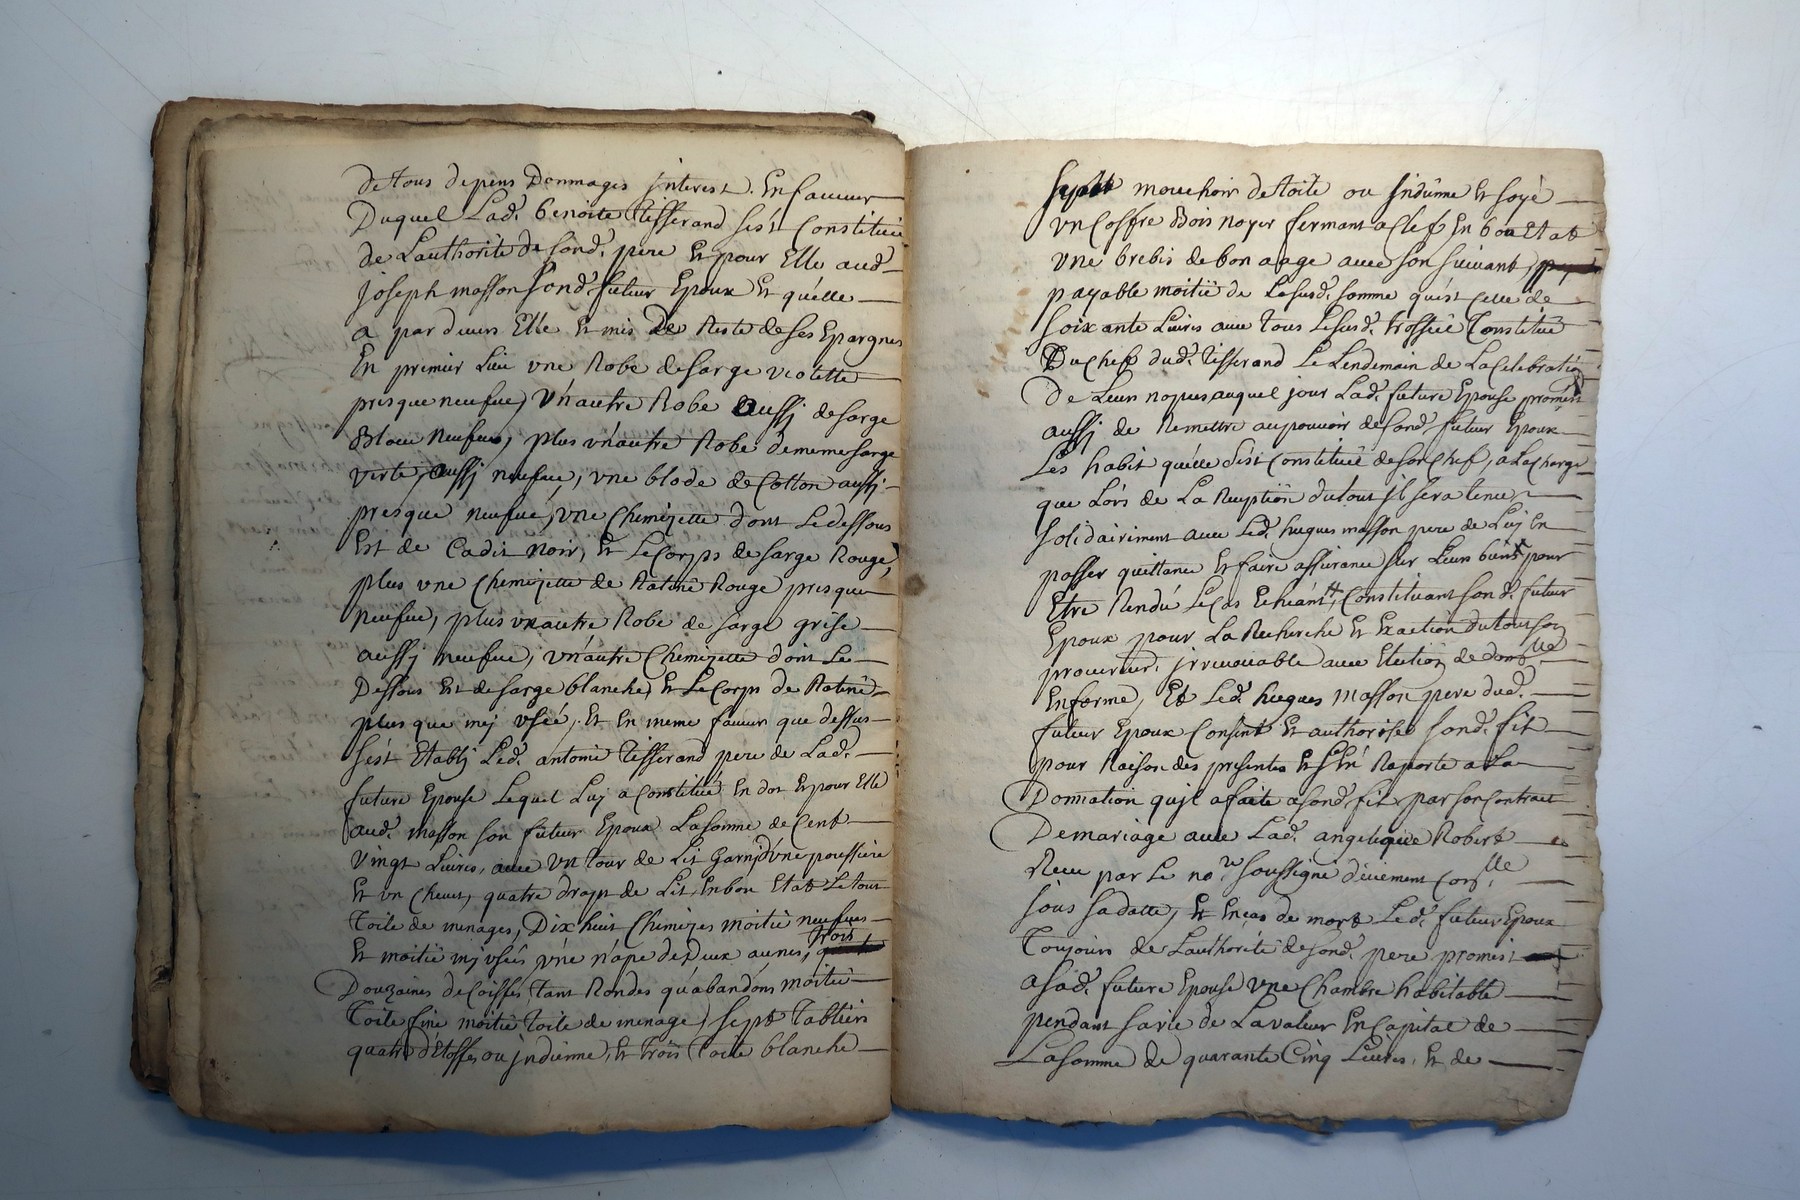 de tous depens Dommages jnterest. En faveur
Duquel Lad.e benoite Tisserand s'est Constituée
de Lauthorité de sond.t pere Et pour Elle aud.t
joseph masson sond.t futur Epoux Et quelle
a par devers Elle Et mis de Reste de ses Epargnes
En premier Lieu vne Robe de sarge violette
presque neufue, vn'autre Robe aussj de sarge
Bleue neufue, plus vn'autre Robe de meme sarge
verte, aussj neufue, vne blode de Cotton aussj
presque neufue, vne Chemizette dont Le dessous
Est de Cadis noir, Et Le Corps de sarge Rouge,
plus vne Chemizette de Ratine Rouge presque
neufue, plus vn autre Robe de sarge grise
aussj neufue, vn'autre Chemizette dont Le
Dessous Est de sarge blanche, Et Le Corps de Ratine
plus que mj vsée, Et En meme faueur que dessus
s'est Etablj Led.t antoine Tisserand pere de Lad.e
future Epouse Lequel Luj a Constitué En dot Et pour Elle
aud.t masson son futur Epoux La somme de Cent
vingt Liures, auec vn tour de Lit Garnj d'vne poussiere
Et vn Cheuet, quatre draps de Lit, En bon Etat Le tout
Toile de menages, Dix huit Chemizes moitié neufues
Et moitié mj vsées vne nape de Deux aunes, trois
Douzaines de Coiffes, tant Rondes qu'abandons moitié
Toile fine moitié toile de menage, sept Tabliers
quatre d'Etoffes ou jndienne, Et trois Toile blanche
sept mouchoir de toile ou jndienne Et soye
vn Coffre Bois noyer fermant a Clef En bon Etat
vne brebis de bon aage auec son suivant,
payable moitié de La susd.e somme qu'est Celle de
soixante Liures auec tous Le susd.t trossée Constitué
Du Chef dud.t Tisserand Le Lendemain de La Celebration
De Leurs nopces auquel jour Lad.e future Epouse promest
aussj de Remettre au pouuoir de sond.t futur Epoux
Les habit qu'elle s'est Constitué de son Chef, a La Charge
que Lors de La Reception du tout jl sera tenu
solidairement auec Led.t hugues masson pere de Luj En
passer quittance Et faire assurance sur Leurs biens pour
Etre Rendu Le Cas Echéant, Constituant sond.t futur
Epoux pour La Recherche Et Exaction du tout son
procureur jrreuocable auec Election de dom.lle
En forme, Et Led.t hugues masson pere dud.t
futur Epoux Consent Et authorise sond.t fit
pour Raison des presentes Et s'En Raporte a La
Donnation qu'jl a faite a sond.t fit par son Contrat
De mariage auec Lad.e angelique Robert
Receu par Le no.re soussigné düement Con.llé
sous sa datte, Et En cas de mort Led.t futur Epoux
Toujours de Lauthorité de sond.t pere promest
a sad.e future Epouse vne Chambre habitable
pendant sa vie de La valeur En Capital de
La somme de quarante Cinq Liures, Et de